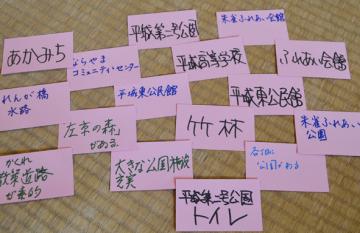 平城第二号公園
朱雀ふれあい会館
あかみち
ならやま
コミュニティセンター
平城高等学校
ふれあい会館
れんが橋
水路
平城東公民館
平城東公民館
左京の森
がある
竹林
朱雀ふれあい
公園
かくれ
散策道路
が素的
大きな公園施設
充実
各地に
公園がある
平城第二号公園
トイレ